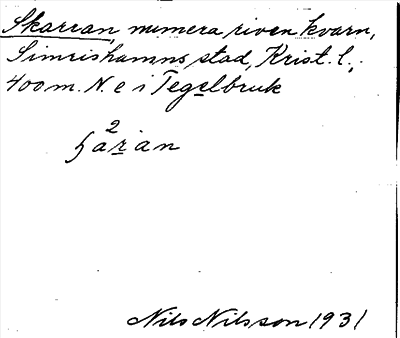 Skarran, numera riven kvarn,
Simrishamns stad, Krist. l.,
400 m. N. e i Tegelbruk
2
Nils Nilsson 1931